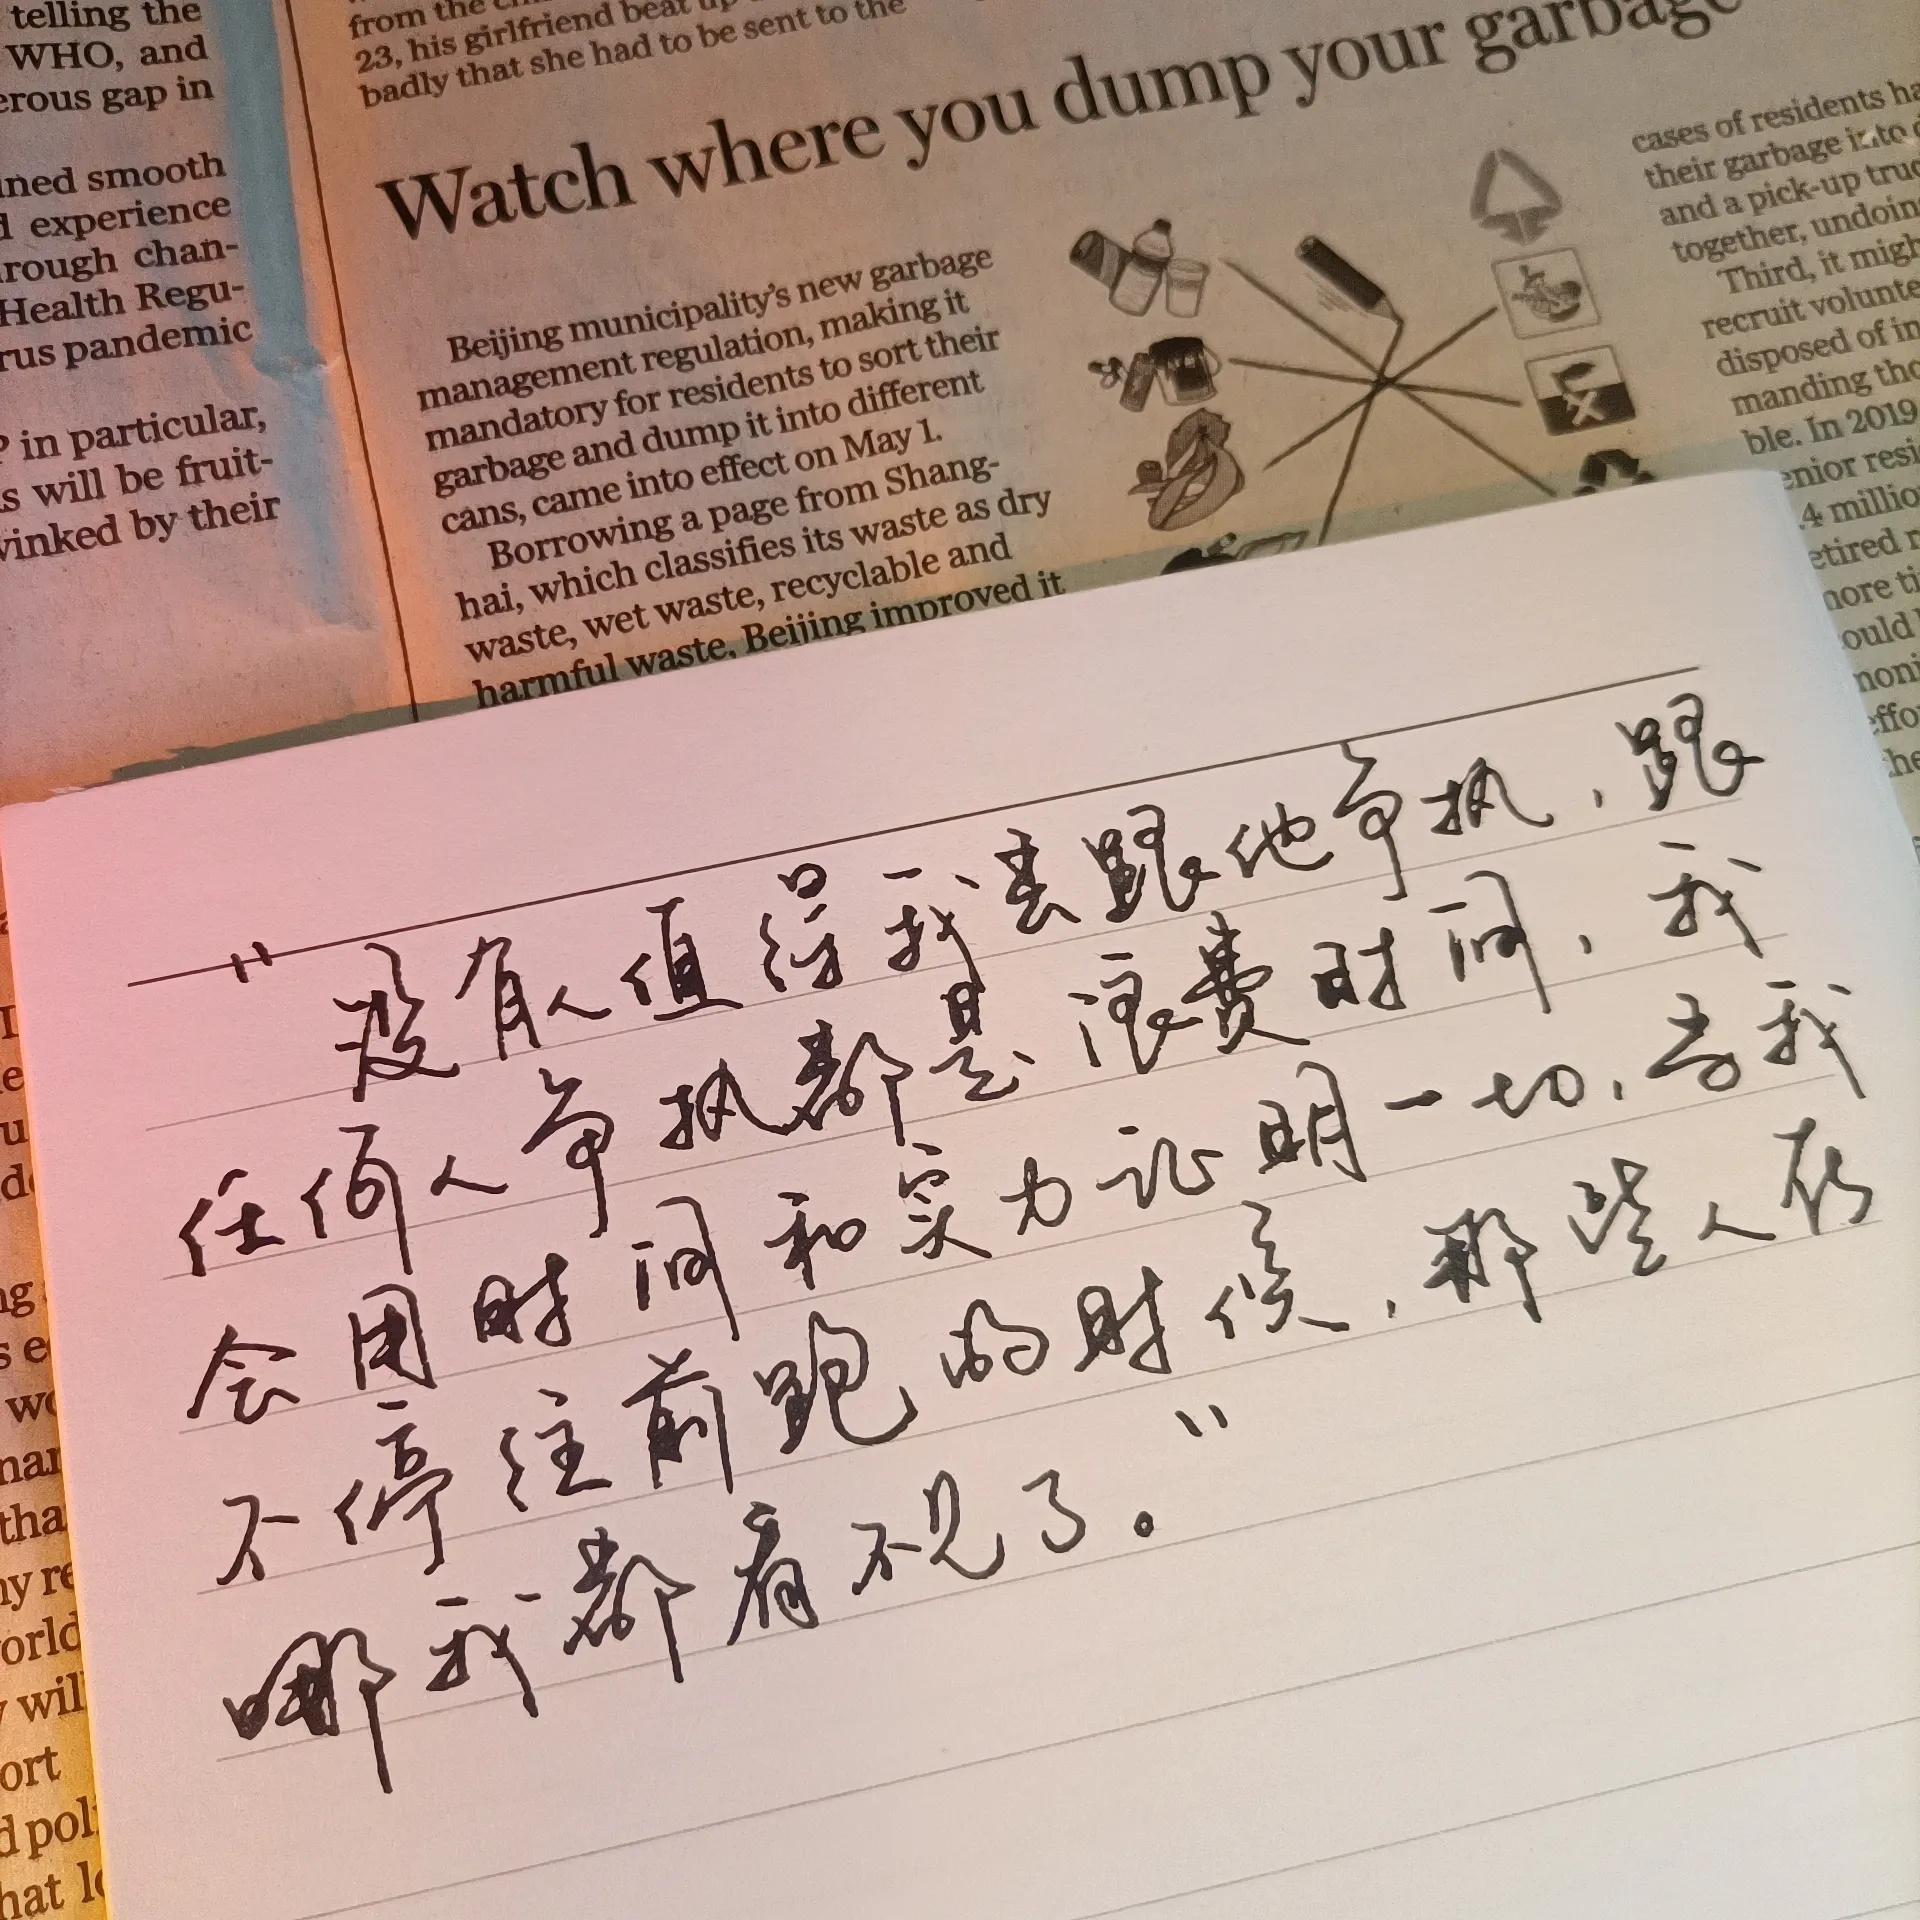 telling the
WHO, and
erous gap in
ined smooth
d experience
rough chan-
Health Regu-
rus pandemic
P in particular,
s will be fruit-
winked by their
from the
23, his girlfriend beat up
badly that she had to be sent to the
Watch where you dump your garbage
Beijing municipality's new garbage
management regulation, making it
mandatory for residents to sort their
garbage and dump it into different
cans, came into effect on May 1.
Borrowing a page from Shang-
hai, which classifies its waste as dry
waste, wet waste, recyclable and
harmful waste, Beijing improved it
cases of residents ha
their garbage into
and a pick-up truc
together, undoing
Third, it migh
recruit volunte
disposed of in
manding tho
ble. In 2019
enior resi
.4 million
etired r
more ti
ould
noni
effo
he
“没有人值得我去跟他争执,跟
任何人争执都是浪费时间,我
会用时间和实力证明一切,当我
不停往前跑的时候,那些人在
哪我都看不见了。”
ort
d poli